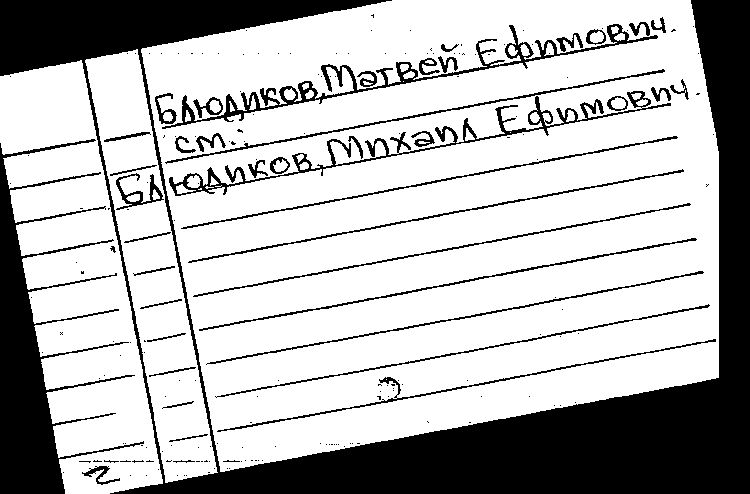 Блюдиков, Матвей Ефимович.
ст.:
Блюдиков, Михаил Ефимович.
2